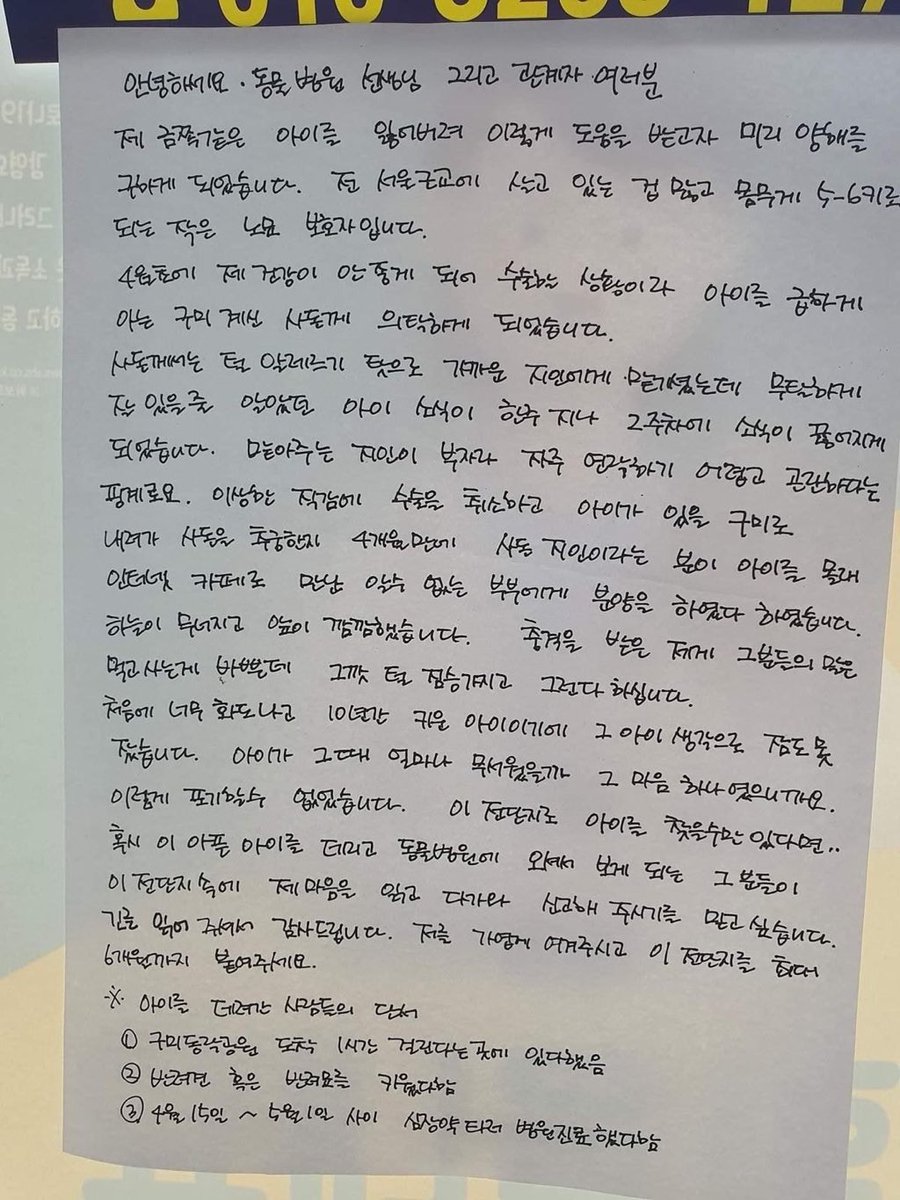 안녕하세요. 동물병원 선생님 그리고 관계자 여러분
제 금쪽같은 아이를 잃어버려 이렇게 도움을 받고자 미리 양해를
구하게 되었습니다. 전 서울근교에 살고 있는 겁 많고 몸무게 5-6키로
되는 작은 노묘 보호자입니다.
4월초에 제 건강이 안 좋게 되어 수술하는 상황이라 아이를 급하게
아는 구미 계신 사돈께 의탁하게 되었습니다.
사돈께서는 털 알레르기 탓으로 가까운 지인에게 맡기셨는데 무탈하게
잘 있을줄 알았던 아이 소식이 한주 지나 2주차에 소식이 끊어지게
되었습니다. 맡아주는 지인이 복자라 자주 연락하기 어렵고 곤란하다는
핑계로요. 이상한 직감에 수술을 취소하고 아이가 있을 구미로
내려가 사돈을 추궁한지 4개월만에 사돈 지인이라는 분이 아이를 몰래
인터넷 카페로 만난 알수 없는 부부에게 분양을 하였다 하였습니다.
하늘이 무너지고 앞이 깜깜했습니다. 충격을 받은 제게 그분들의 말은
먹고사는게 바쁜데 그깟 털 짐승가지고 그런다 하십니다.
처음에 너무 화도나고 10년간 키운 아이이기에 그 아이 생각으로 잠도 못
잤습니다. 아이가 그때 얼마나 무서웠을까 그 마음 하나였으니까요.
이렇게 포기할수 없었습니다. 이 전단지로 아이를 찾을수만 있다면..
혹시 이 아픈 아이를 데리고 동물병원에 와셔서 보게 되는 그 분들이
이 전단지 속에 제 마음을 읽고 다가와 신고해 주시기를 믿고 싶습니다.
긴글 읽어 주셔서 감사드립니다. 저를 가엽게 여겨주시고 이 전단지를 최대
6개월까지 붙여주세요.
※ 아이를 데려간 사람들의 단서
① 구미동락공원 도착 1시간 걸린다는곳에 있다했음
② 반려견 혹은 반려묘를 키웠다함
③ 4월 15일 ~ 5월1일 사이 심장약 타러 병원진료했다함